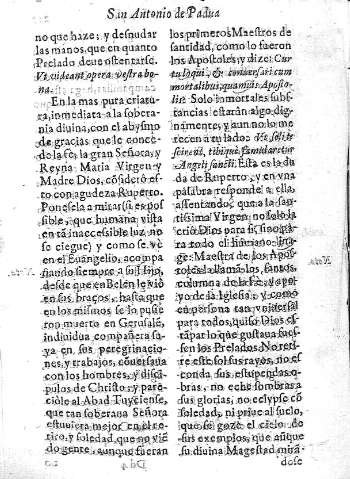 San Antonio de Padua
no que haze; y desnudar
las manos, que en quanto
Prelado deve ostentarse.
Vt videant opera vestra bo-
na.
En la mas pura criatu
ra, inmediata a la sobera-
nia divina, con el abysmo
de gracias que le conce-
dio la fè, la gran Señora, y
Reyna Maria Virgen y
Madre Dios, cõsiderò es-
to con agudeza Ruperto.
Ponesela a mirar si es pos-
sible, que humana vista
en tã inaccessible luz, no
se ciegue) y como se vè
en el Euangelio, acompa
ñando siempre a su Hijo,
desde que en Belen le viò
en sus braços, hasta que
en los mismos se lo pusie
ron muerto en Gerusalẽ,
individua compañera su-
ya en sus peregrinacio-
nes, y trabajos, conversaua
con los hombres, y discì-
pulos de Christo: y pare-
ciòle al Abad Tuyciense,
que tan soberana Señora
estuviera mejor en el re-
tiro, y soledad, que no viẽ
do gente, aunque fueran
Dd 4
los primeros Maestros de
santidad, como lo fueron
los Apostoles, y dize: Cur
loqui, & conversari cum
mortalibus, quamuis Aposto-
lis? Solo inmortales subs-
tancias estaràn algo dig-
namente, y aun no lo me-
recen a tu lado:
Angeli sancti. Esta es la du
da de Ruperto, y en vna
palabra responde a ella,
assentando, que a la San-
tissima Virgen, no solo la
criò Dios para si, sino pa
ra todo el humano lina-
ge: Maestra de los Apos-
toles la llamã los Santos,
columna de la Fè, y apo-
yo de la Iglesia, y como
en persona tan vniversal
para todos, quiso Dios es-
tãpar lo que gustaua fues-
sen los Prelados. No reti-
re este sol sus rayos, no es
conda sus estupendas o-
bras, no eche sombras a
sus glorias, no eclypse cõ
soledad, ni prive al suelo,
que se goze el cielo de
sus exemplos, que aunque
su divina Magestad mirà-
dose